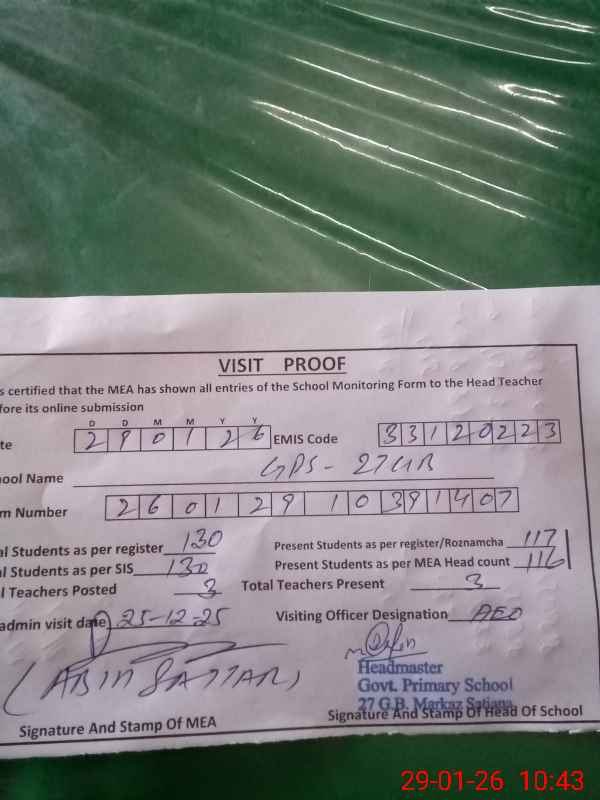 VISIT PROOF
s certified that the MEA has shown all entries of the School Monitoring Form to the Head Teacher
fore its online submission
te D D M M Y Y 290126 EMIS Code 33120223
ool Name GPS - 27GB
m Number 26 01 29 10 391407
al Students as per register 130 Present Students as per register/Roznamcha 117
al Students as per SIS 130 Present Students as per MEA Head count 116
l Teachers Posted 3 Total Teachers Present 3
admin visit date 25-12-25 Visiting Officer Designation AEO
Headmaster
Govt. Primary School
27 G.B. Markaz Satiana
Signature And Stamp Of MEA Signature And Stamp Of Head Of School
29-01-26 10:43